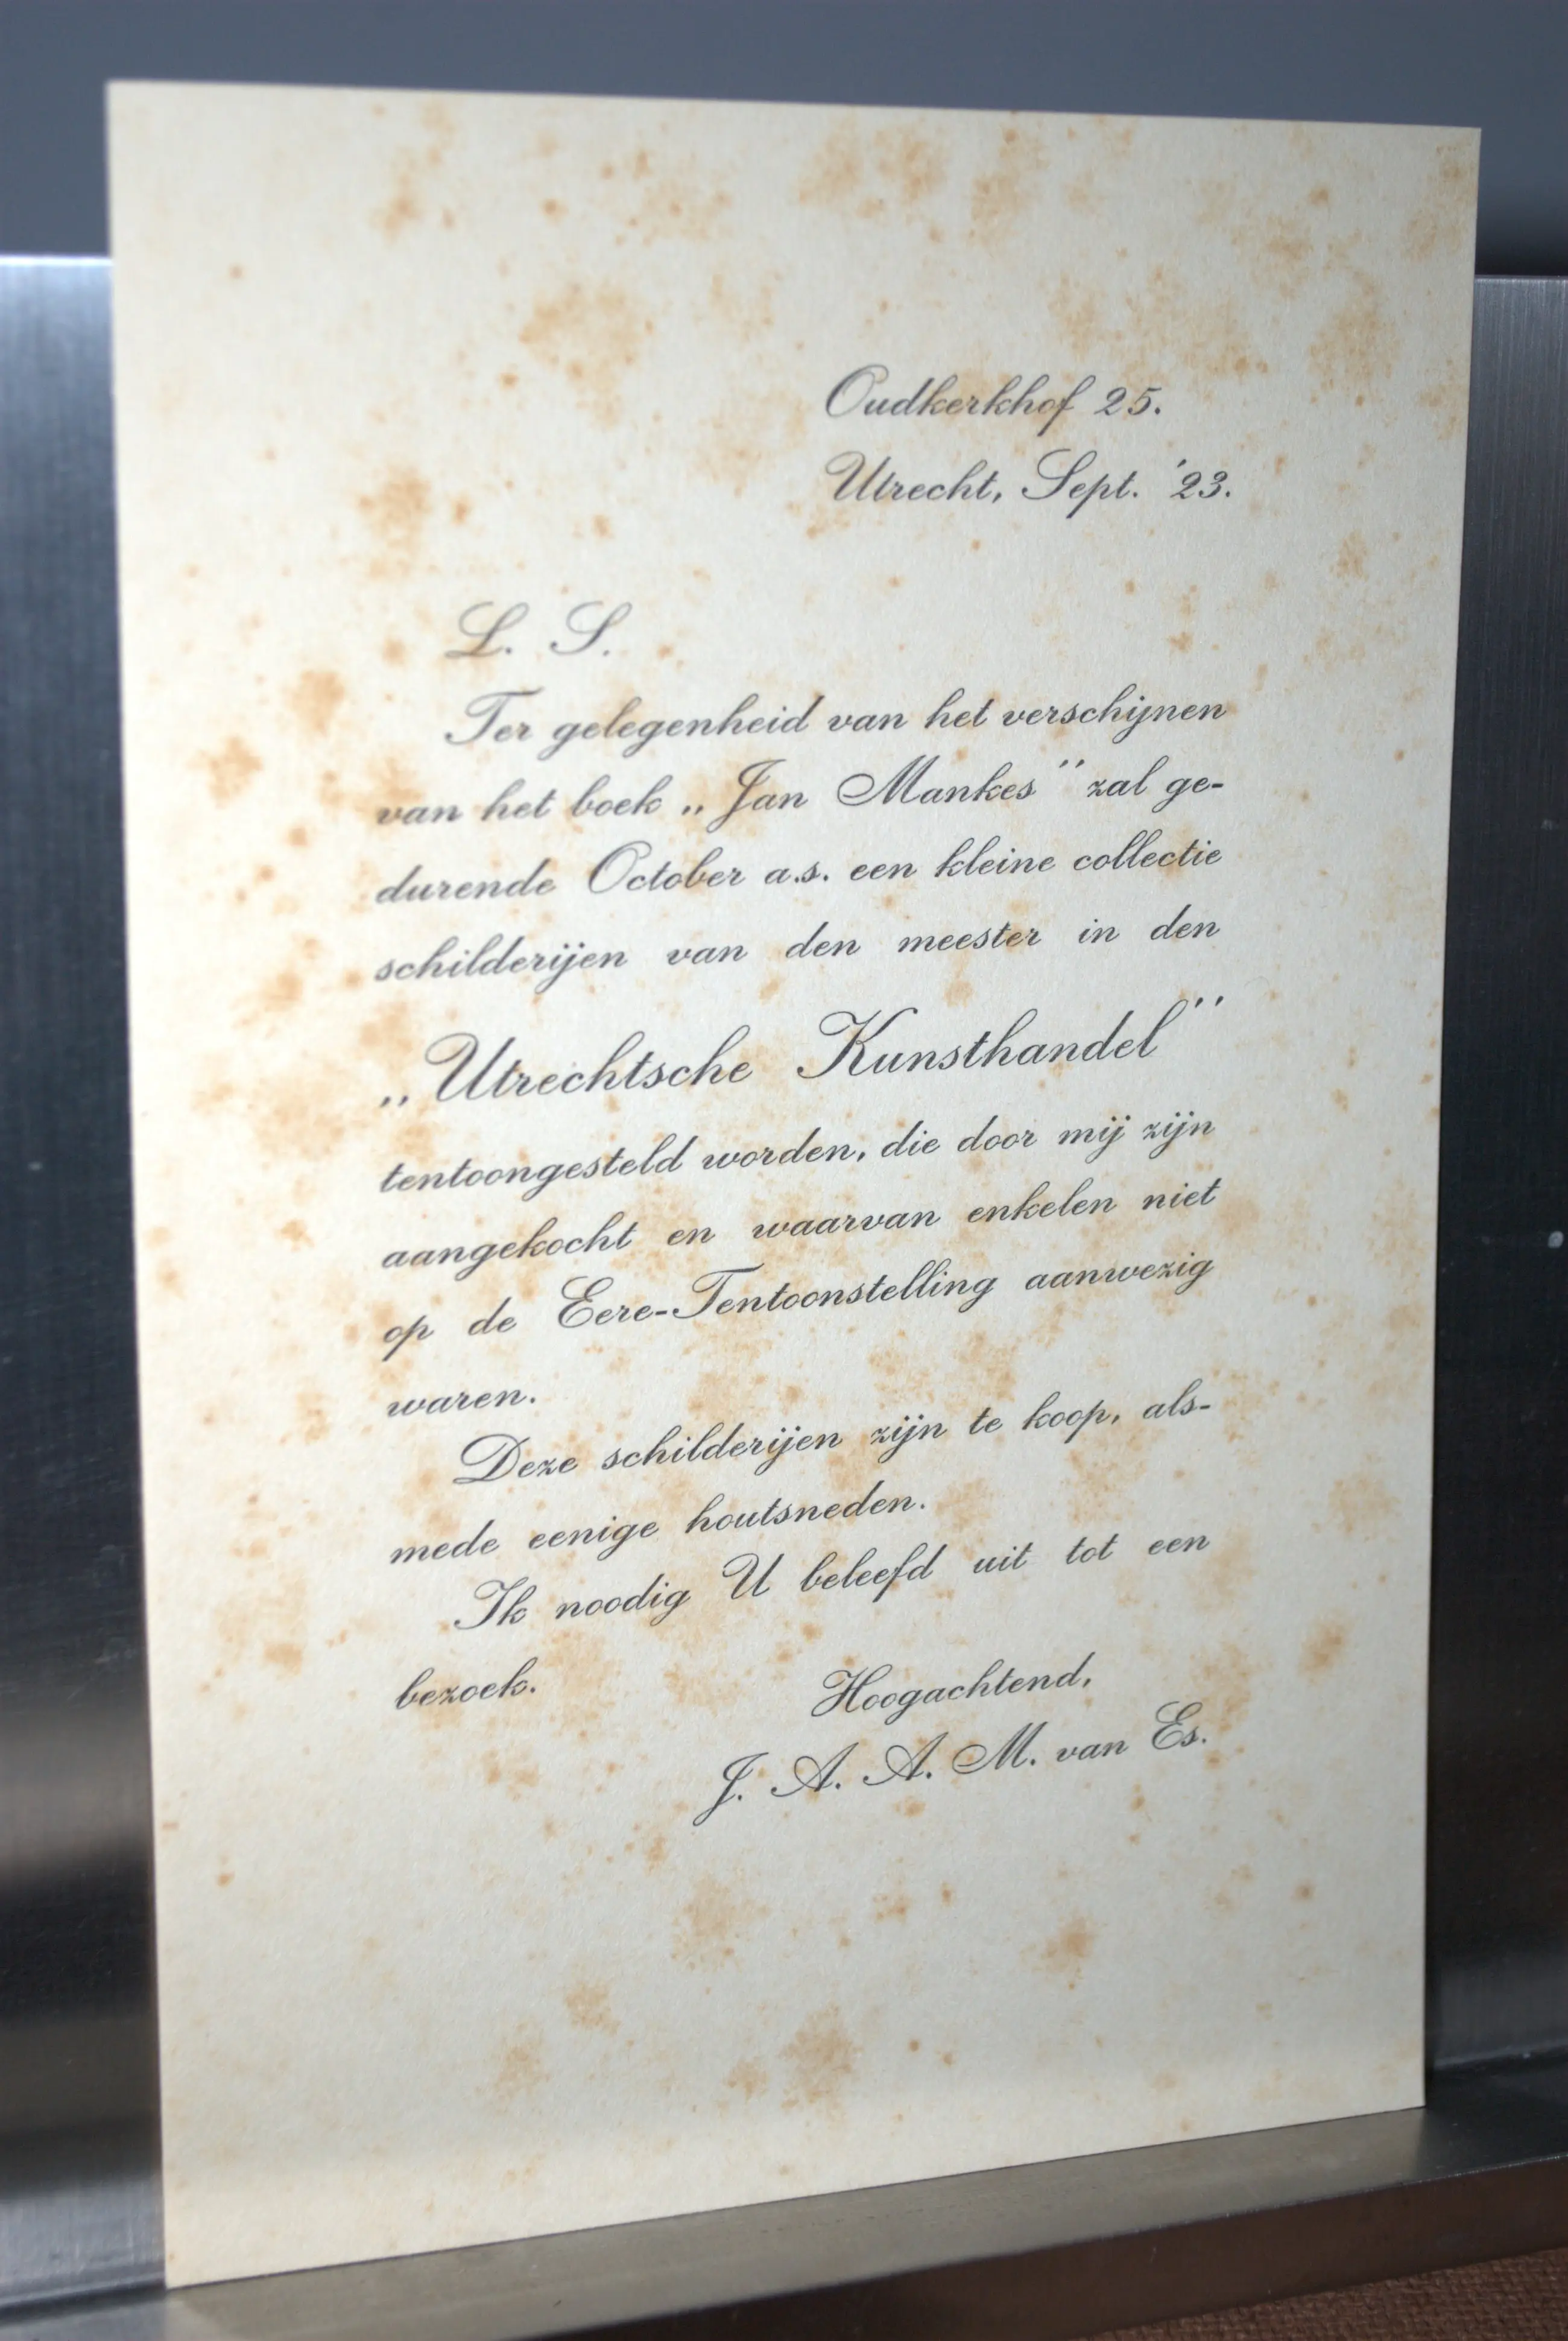 Oudkerkhof 25.
Utrecht, Sept. '23.
L. S.
Ter gelegenheid van het verschijnen
van het boek „Jan Mankes” zal ge-
durende October a.s. een kleine collectie
schilderijen van den meester in den
„Utrechtsche Kunsthandel”
tentoongesteld worden, die door mij zijn
aangekocht en waarvan enkelen niet
op de Eere-Tentoonstelling aanwezig
waren.
Deze schilderijen zijn te koop, als-
mede eenige houtsneden.
Ik noodig U beleefd uit tot een
bezoek.
Hoogachtend,
J. A. A. M. van Es.